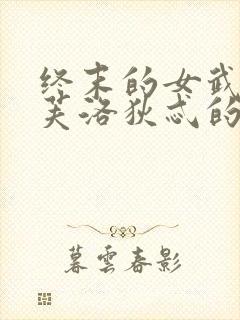 终末的女武
芙洛狄忒的
暮雲春影